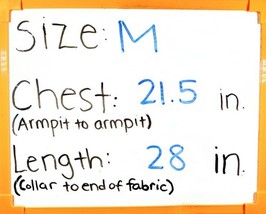 Size: M
Chest: 21.5 in.
(Armpit to armpit)
Length: 28 in.
(Collar to end of fabric)